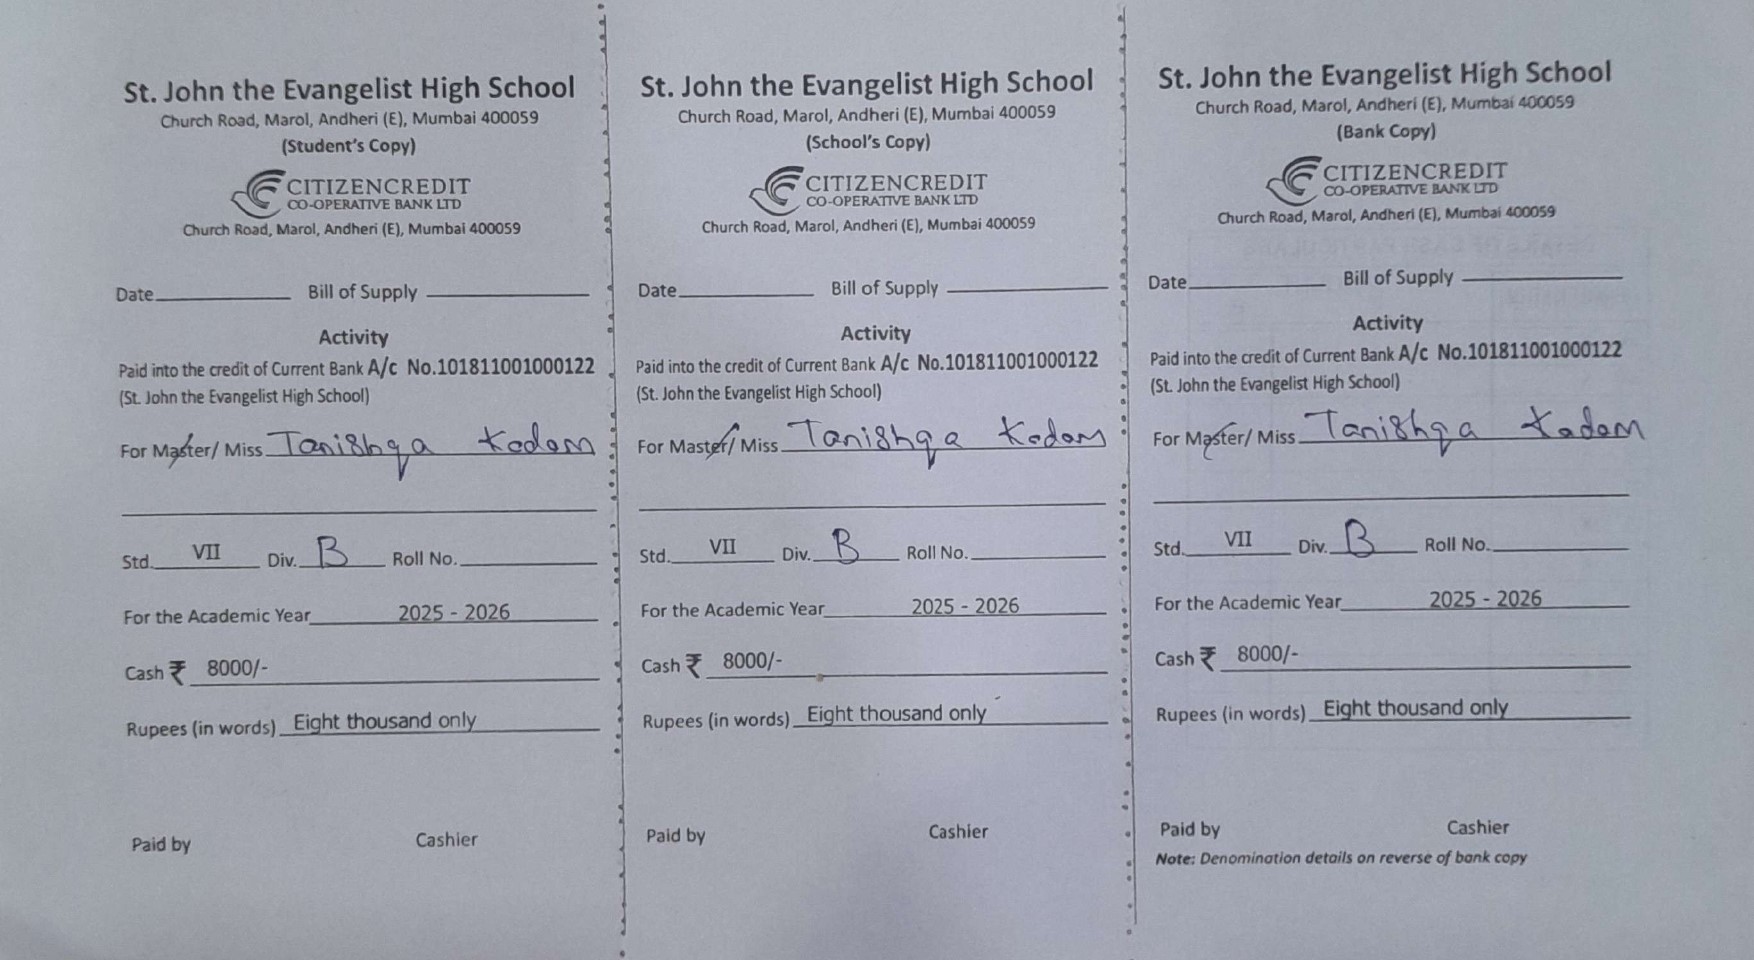 St. John the Evangelist High School
Church Road, Marol, Andheri (E), Mumbai 400059
(Student's Copy)
CITIZENCREDIT
CO-OPERATIVE BANK LTD
Church Road, Marol, Andheri (E), Mumbai 400059
Date Bill of Supply
Activity
Paid into the credit of Current Bank A/c No.101811001000122
(St. John the Evangelist High School)
For Master/ Miss Tanishqa Kadam
Std. VII Div. B Roll No.
For the Academic Year 2025 - 2026
Cash ₹ 8000/-
Rupees (in words) Eight thousand only
Paid by Cashier
St. John the Evangelist High School
Church Road, Marol, Andheri (E), Mumbai 400059
(School's Copy)
CITIZENCREDIT
CO-OPERATIVE BANK LTD
Church Road, Marol, Andheri (E), Mumbai 400059
Date Bill of Supply
Activity
Paid into the credit of Current Bank A/c No.101811001000122
(St. John the Evangelist High School)
For Master/ Miss Tanishqa Kadam
Std. VII Div. B Roll No.
For the Academic Year 2025 - 2026
Cash ₹ 8000/-
Rupees (in words) Eight thousand only
Paid by Cashier
St. John the Evangelist High School
Church Road, Marol, Andheri (E), Mumbai 400059
(Bank Copy)
CITIZENCREDIT
CO-OPERATIVE BANK LTD
Church Road, Marol, Andheri (E), Mumbai 400059
Date Bill of Supply
Activity
Paid into the credit of Current Bank A/c No.101811001000122
(St. John the Evangelist High School)
For Master/ Miss Tanishqa Kadam
Std. VII Div. B Roll No.
For the Academic Year 2025 - 2026
Cash ₹ 8000/-
Rupees (in words) Eight thousand only
Paid by Cashier
Note: Denomination details on reverse of bank copy